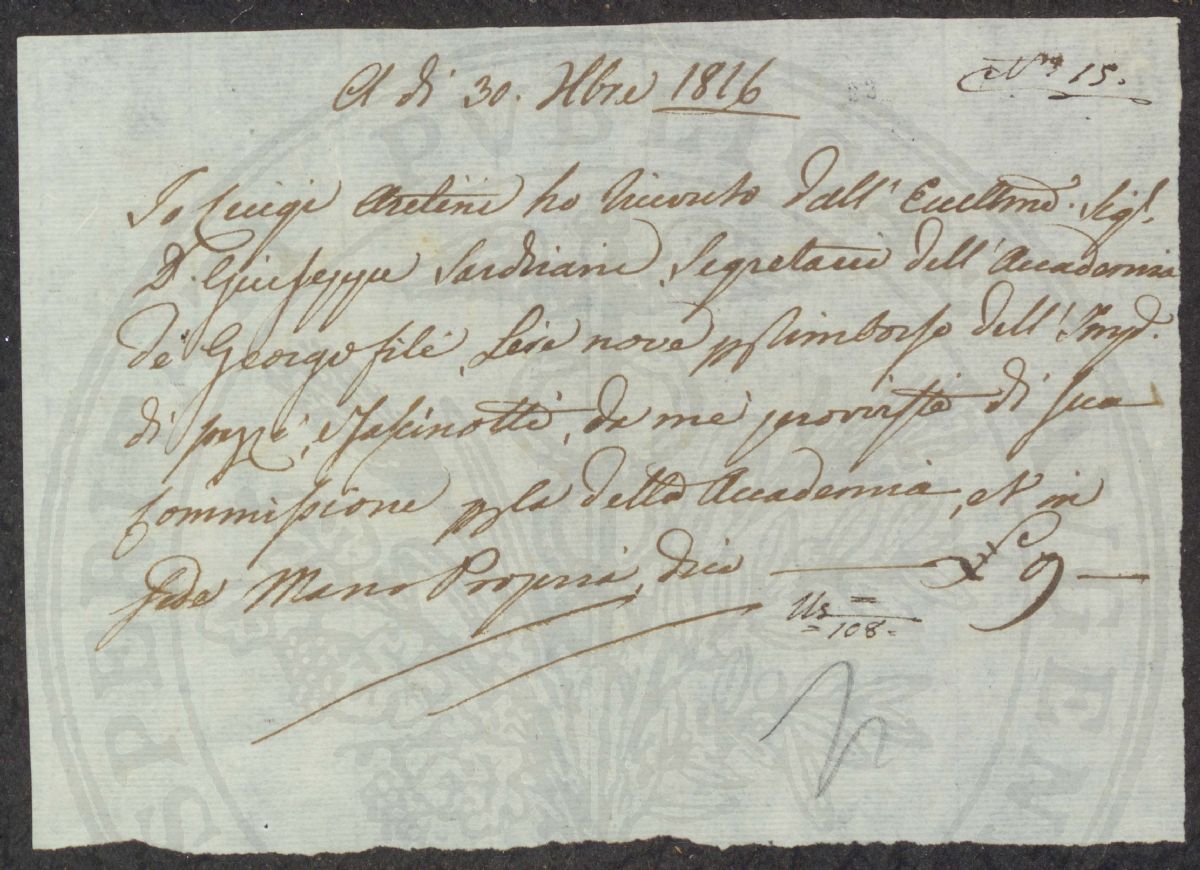 A di 30. Xbre 1816
N.º 15.
Io Luigi Aretini ho ricevuto dall' Eccellmo. Sigl.
D. Giuseppe Sardi Segretario dell' Accademia
de Georgofili, Lire nove rimborso dell' Imp.
di pezzi, Fascinotti, da me provviste di sua
Commissione la detta Accademia, et in
fede Mano Propria, dico 9
108